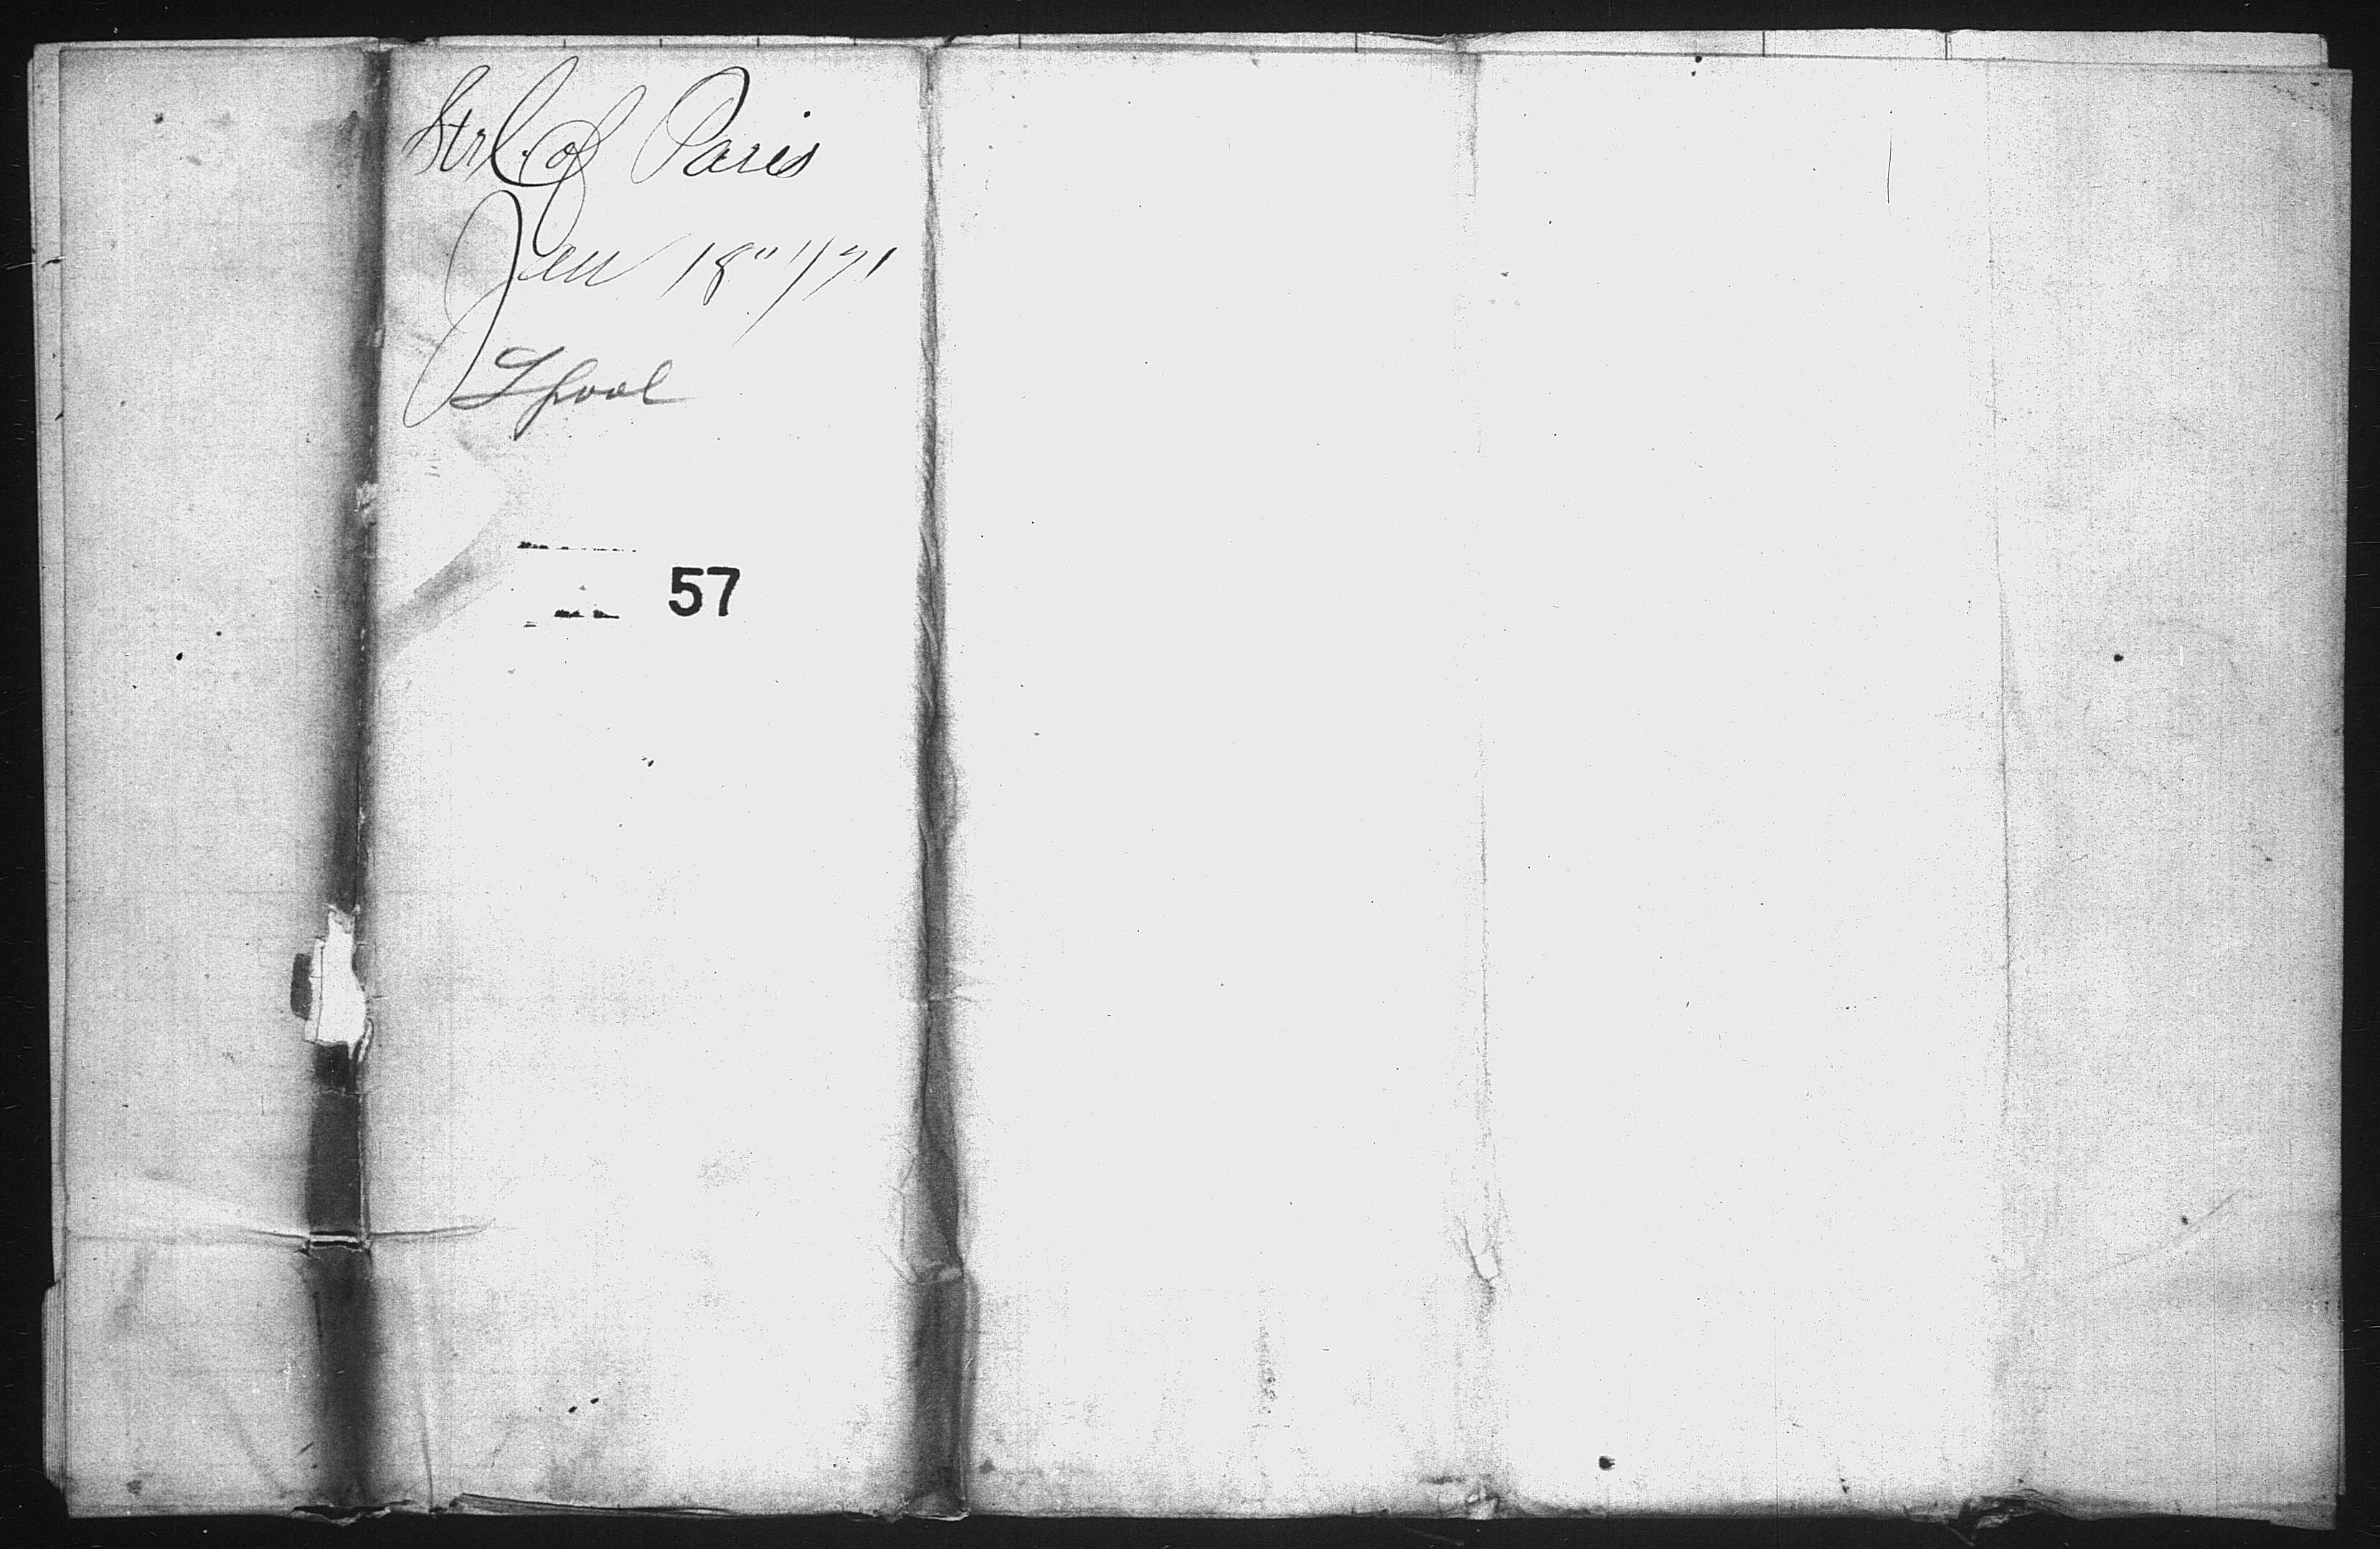 Str C. of Paris
Jan 18" 1/71
Lpool
57